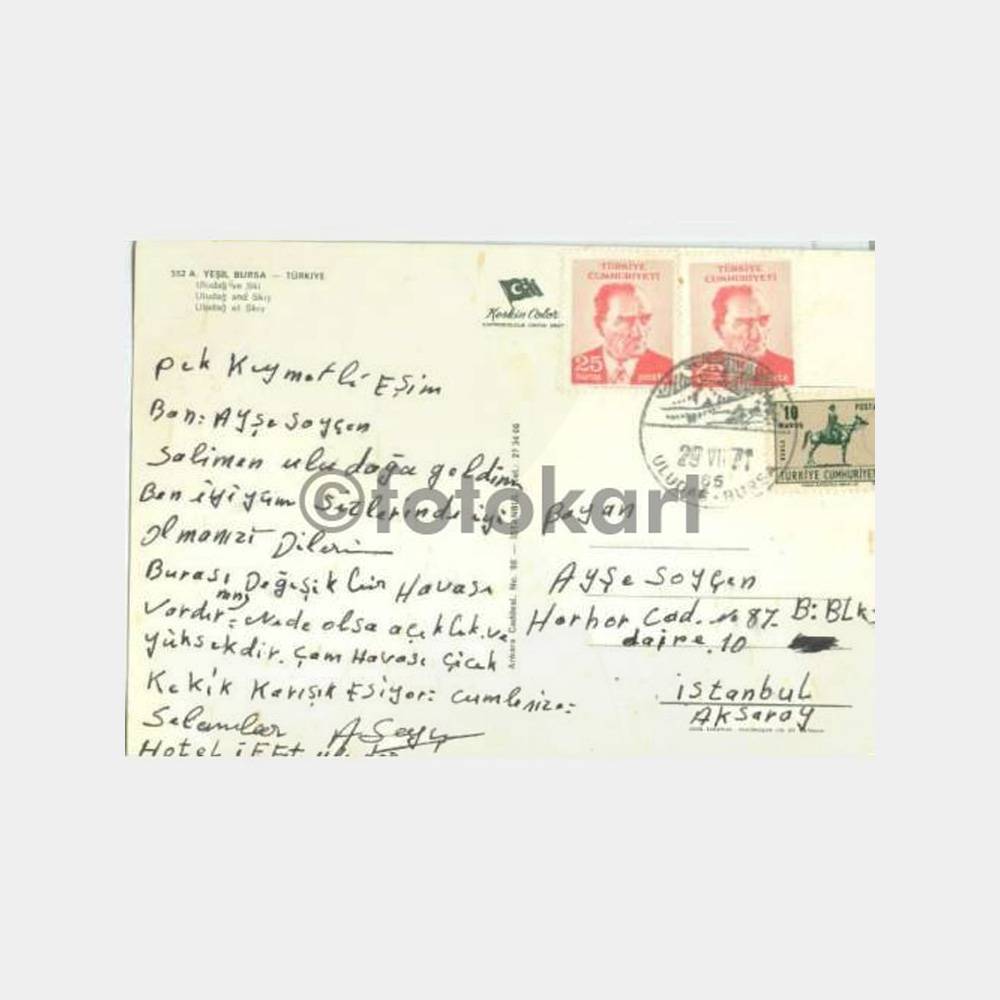 552 A. YEŞİL BURSA — TÜRKİYE
Uludağ ve Ski
Uludağ and Skıy
Uludağ et Skıy
Keskin Color
TÜRKİYE
CUMHURİYETİ
25
KURUŞ POSTA
TÜRKİYE
CUMHURİYETİ
10
KURUŞ
POSTA
TÜRKİYE CUMHURİYETİ
29 VII 71
ULUDAĞ - BURSA
Pek Kıymetli Eşim
Ban: Ayşe Soyçen
Salimen uludağa geldim
Ben iyiyim Sizlerinde iyi
olmanızı Dilerim
Burası Değeşik bir Havası
Vardır: Nede olsa açıklık ve
yüksekdir. Çam Havası Çicek
Kekik Karışık Esiyor: cümlenize:
Selamlar
Hotel
Ankara Caddesi, No. 98 — İSTANBUL Tel.: 27 34 06
Bayan
Ayşe Soyçen
Horhor Cad. No 87. B: BLK:
daire. 10
istanbul
Aksaray
©fotokart